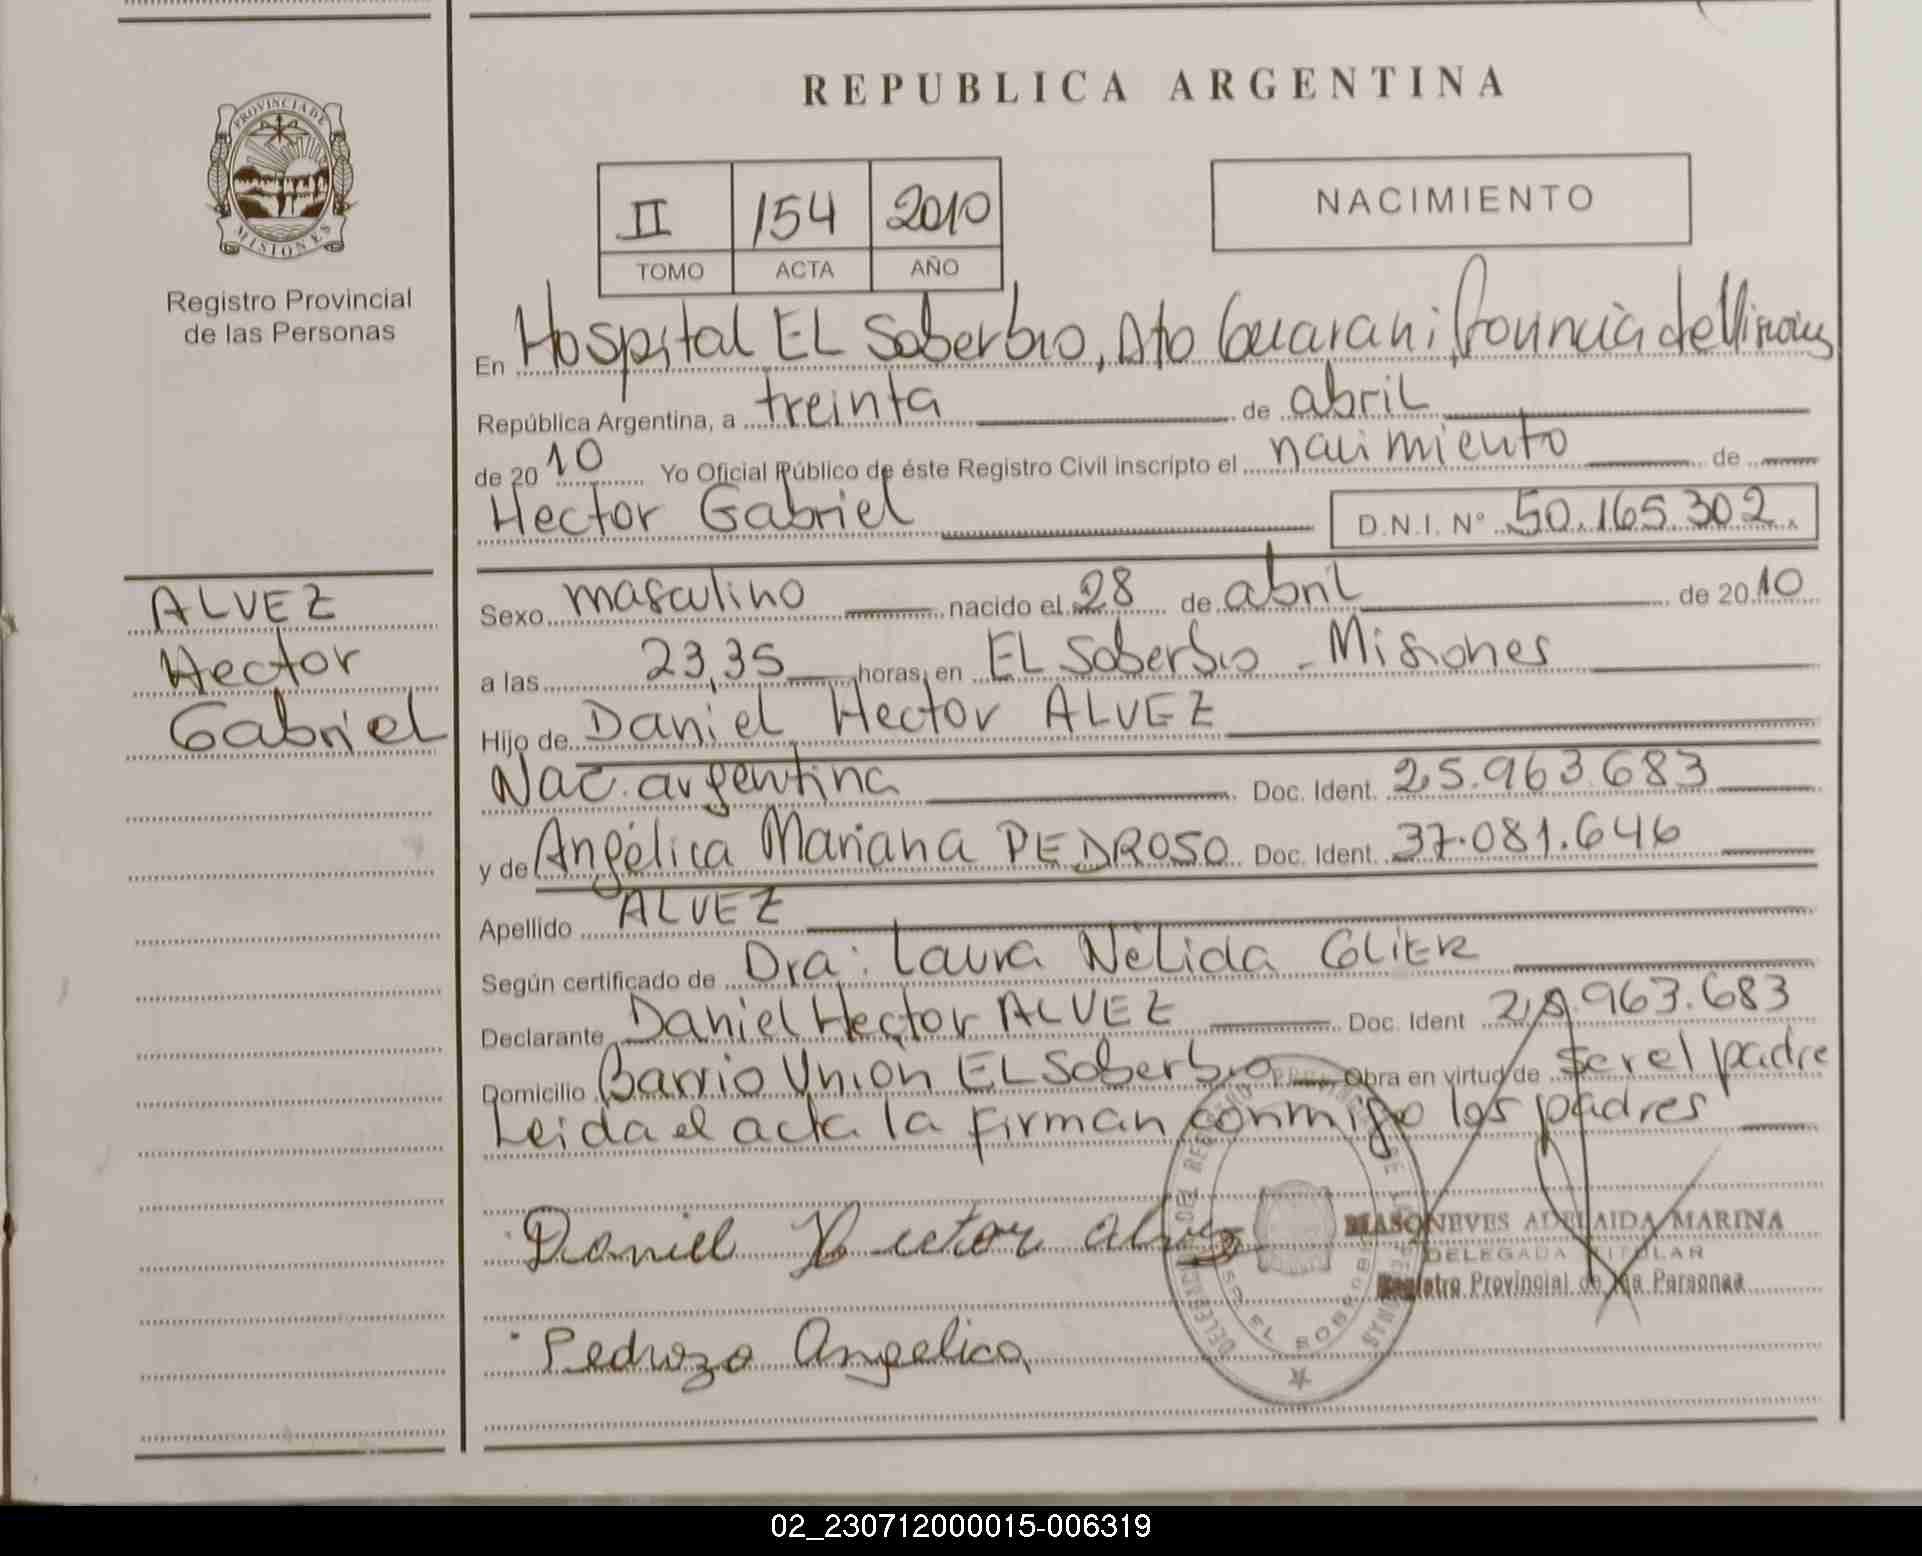 REPUBLICA ARGENTINA
PROVINCIA DE
MISIONES
Registro Provincial
de las Personas
II 154 2010
TOMO ACTA AÑO
NACIMIENTO
En Hospital EL Soberbio, Dto Guarani, Provincia de Misiones
República Argentina, a treinta de abril
de 20 10 Yo Oficial Público de éste Registro Civil inscripto el nacimiento de
Hector Gabriel D.N.I. Nº 50.165.302.
ALVEZ
Hector
Gabriel
Sexo masculino nacido el 28 de abril de 20 10
a las 23,35 horas, en EL Soberbio - Misiones
Hijo de Daniel Hector ALVEZ
Nac. argentina Doc. Ident. 25.963.683
y de Angélica Mariana PEDROSO Doc. Ident. 37.081.646
Apellido ALVEZ
Según certificado de Dra: Laura Nélida GLIER
Declarante Daniel Hector ALVEZ Doc. Ident 25.963.683
Domicilio Barrio Unión EL Soberbio Obra en virtud de ser el padre
Leida el acta la firman conmigo los padres
Daniel Hector Alvez
MASONEVES ADELAIDA MARINA
DELEGADA TITULAR
Registro Provincial de las Personas
Pedrozo Angelica
02_230712000015-006319